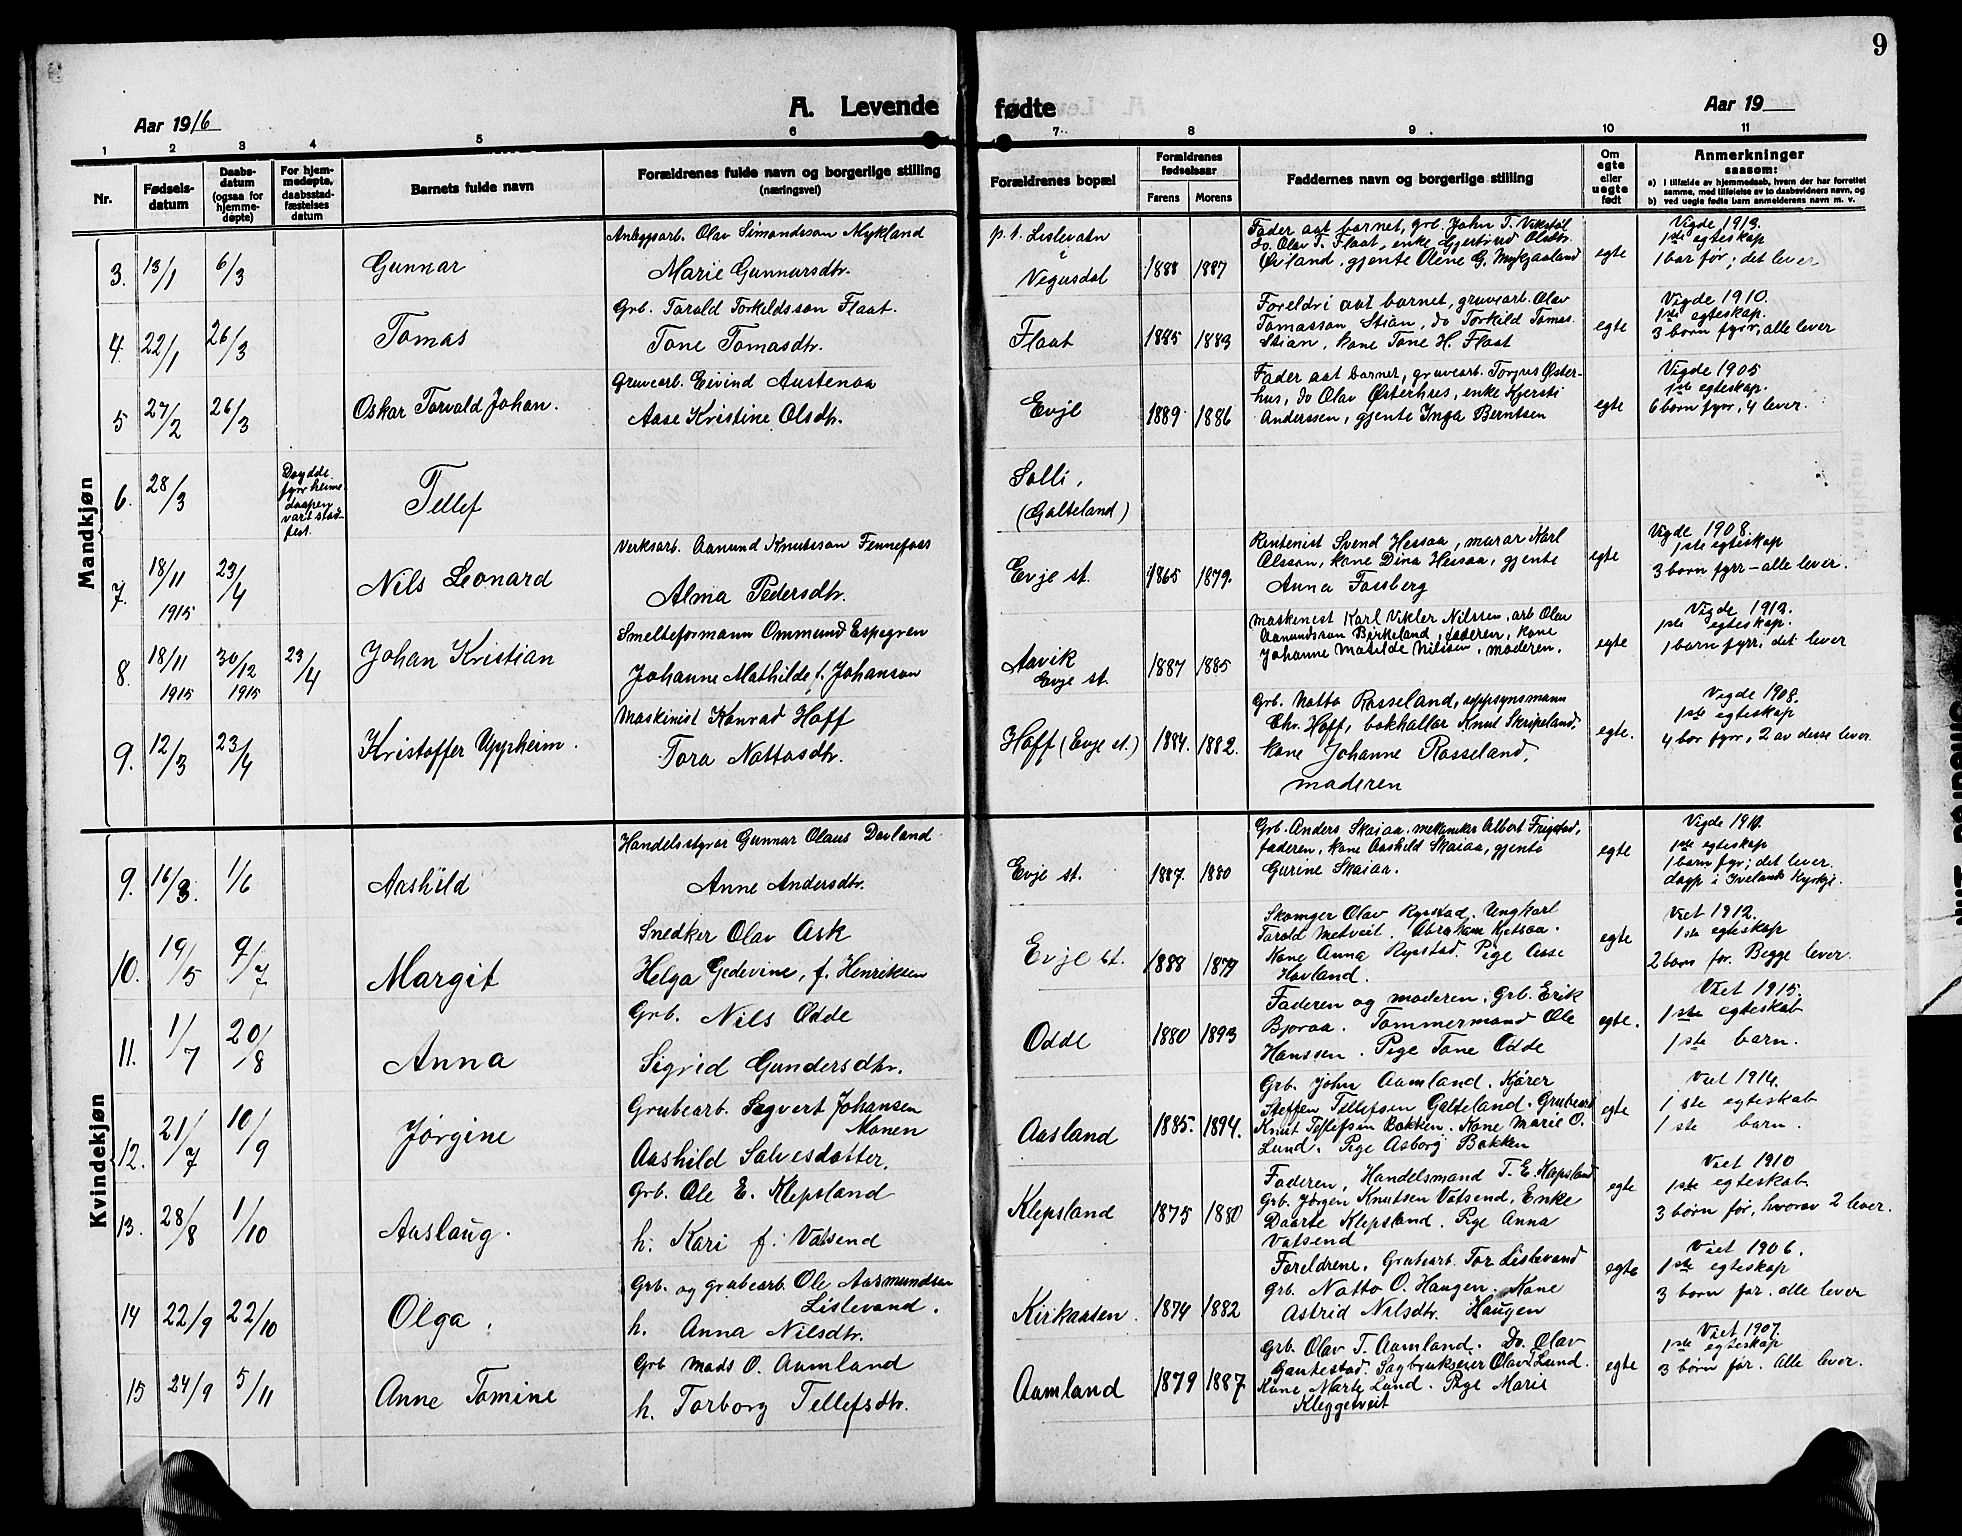 9
A. Levende fødte
Aar 1916
Aar 19
1 2 3 4 5 6 7 8 9 10 11
Nr.
Fødsels-
datum
Daabs-
datum
(ogsaa for
hjemme-
døpte)
For hjem-
medøpte,
daabsstad-
fæstelses
datum
Barnets fulde navn
Forældrenes fulde navn og borgerlige stilling
(næringsvei)
Forældrenes bopæl
Forældrenes
fødselsaar
Farens Morens
Faddernes navn og borgerlige stilling
Om
egte
eller
uegte
født
Anmerkninger
saasom:
a) i tilfælde av hjemmedaab, hvem der har forrettet
samme, med tilføielse av to daabsvidners navn, og
b) ved uegte fødte barn anmelderens navn m. v.
Mandkjøn
3. 13/1 6/3 Gunnar
Anleggsarb. Olav Simondsson Mykland
Marie Gunnarsdtr.
p. t. Lislevatn
i
Vegusdal
1888 1887
Fader aat barnet, grb. John T. Vikstøl
do. Olav T. Flaat, enke Gjertrud Olsdtr.
Øiland, gjente Olene G. Mykjaaland
egte
Vigde 1913.
1ste egteskap
1 bar før; det lever
4. 22/1 26/3 Tomas
Grb. Tarald Torkildsson Flaat.
Tone Tomasdtr.
Flaat
1885 1883
Foreldri aat barnet, gruvearb. Olav
Tomasson Stian, do Torkild Tomas.
Stian, kone Tone H. Flaat
egte
Vigde 1910.
1ste egteskap.
3 born fyrr, alle lever
5 27/2 26/3 Oskar Torvald Johan.
Gruvearb. Eivind Austenaa
Aase Kristine Olsdtr.
Evje
1889 1886
Fader aat barnet, gruvearb. Torgus Øster-
hus, do Olav Østerhus, enke Kjersti
Anderssen, gjente Inga Berntsen
egte
Vigde 1905
1ste egteskap.
6 born fyrr, 4 lever.
6. 28/3
Døydde
fyrr heime-
daapen
vart stad-
fest.
Tellef
Solli,
(Galteland)
7. 18/11 1915 23/4 Nils Leonard
Verksarb. Aanund Knutsson Fennefoss
Alma Pedersdtr.
Evje st.
1865 1879.
Rentenist Svend Hessaa, murar Karl
Olsson, kone Dina Hessaa, gjente
Anna Fossberg
egte
Vigde 1908.
1ste egteskap
3 born fyrr - alle lever.
8. 18/11 1915 30/12 1915 23/4 Johan Kristian
Smelteformann Ommund Espegren
Johanne Mathilde f. Johanson
Aavik
Evje st.
1887 1885
Maskenist Karl Vikler Nilssen, arb Olav
Aanundsson Birkeland, faderen, kone
Johanne Matilde Nilssen, moderen.
egte
Vigde 1913.
1ste egteskap.
1 barn fyrr, det lever
9. 12/3 23/4 Kristoffer Uppheim.
Maskinist Konrad Hoff
Tora Nattosdtr.
Hoff (Evje st.)
1884. 1882.
Grb. Natto Rosseland, uppsynsmann
Chr. Hoff, bokhallar Knut Skripeland,
kone Johanne Rosseland,
moderen
egte.
Vigde 1908.
1ste egteskap
4 bor fyrr, 2 av desse lever.
Kvindekjøn
9. 16/3. 1/6 Aashild
Handelsstyrar Gunnar Olaus Dovland
Anne Andersdtr.
Evje st.
1887. 1880
Grb. Anders Skaiaa, mekaniker Albert Frigstad,
faderen, kone Aashild Skaiaa, gjente
Gurine Skaiaa.
egte
1ste egteskap
1 barn fyr; det lever.
døyp i Ivelands Kyrkje.
10. 19/5 9/7 Margit
Snedker Olav Ask
Helga Gedevine, f. Henriksen
Evje st.
1888 1879
Skomger Olav Rypstad. Ungkarl
Tarald Metveit. Abraham Kjetsaa.
Kone Anna Rypstad. Pige Aase
Hovland.
egte
Viet 1912.
1ste egteskap
2 born før. Begge lever.
11. 1/7 20/8 Anna
Grb. Nils Odde
Sigrid Gundersdtr.
Odde
1880 1893
Faderen og moderen. Grb. Erik
Bjoraa. Tømmermand Ole
Hanssen. Pige Tone Odde
egte.
Viet 1915.
1ste egteskab
1ste barn.
12. 21/7 10/9 Jørgine
Grubearb. Segvert Johansen
Monen
Aashild Salvesdatter.
Aasland
1885. 1894.
Grb. John Aamland. Kjører
Steffen Tellefsen Galteland. Grubearb
Knut Tellefsen Bakken. Kone Marie O.
Lund. Pige Asborg Bakken
egte
Viet 1914.
1ste egteskab
1ste barn.
13. 28/8 1/10 Auslaug.
Grb. Ole E. Klepsland
h. Kari f. Vatsend
Klepsland
1875 1880
Faderen, Handelsmand T. E. Kapsland
Grb. Jørgen Knutsen Vatsend, Enke
Daarte Klepsland. Pige Anna
Vatsend
egte
Viet 1910
1ste egteskab
3 børn før, hvorav 2 lever.
14 22/9 22/10 Olga.
Grb. og grubearb. Ole Aasmundsen
Lislevand.
h. Anna Nilsdtr.
Kirkaasen.
1874 1882
Foreldrene. Grubearb. Tor Lislevand
Grb. Natto O. Haugen. Kone
Astrid Nilsdtr. Haugen
egte
Viet 1906.
1ste egteskap
3 born før. alle lever
15 24/9 5/11 Anne Tomine
Grb Mads O. Aamland
h. Torborg Tellefsdtr.
Aamland
1879 1887.
Grb. Olav T. Aamland. Do. Olav
Gautestad. Sagbrukseier Olav T Lund.
Kone Marte Lund. Pige Marie
Kleggetveit
egte
Viet 1907.
1ste egteskap
3 børn før. Alle lever.